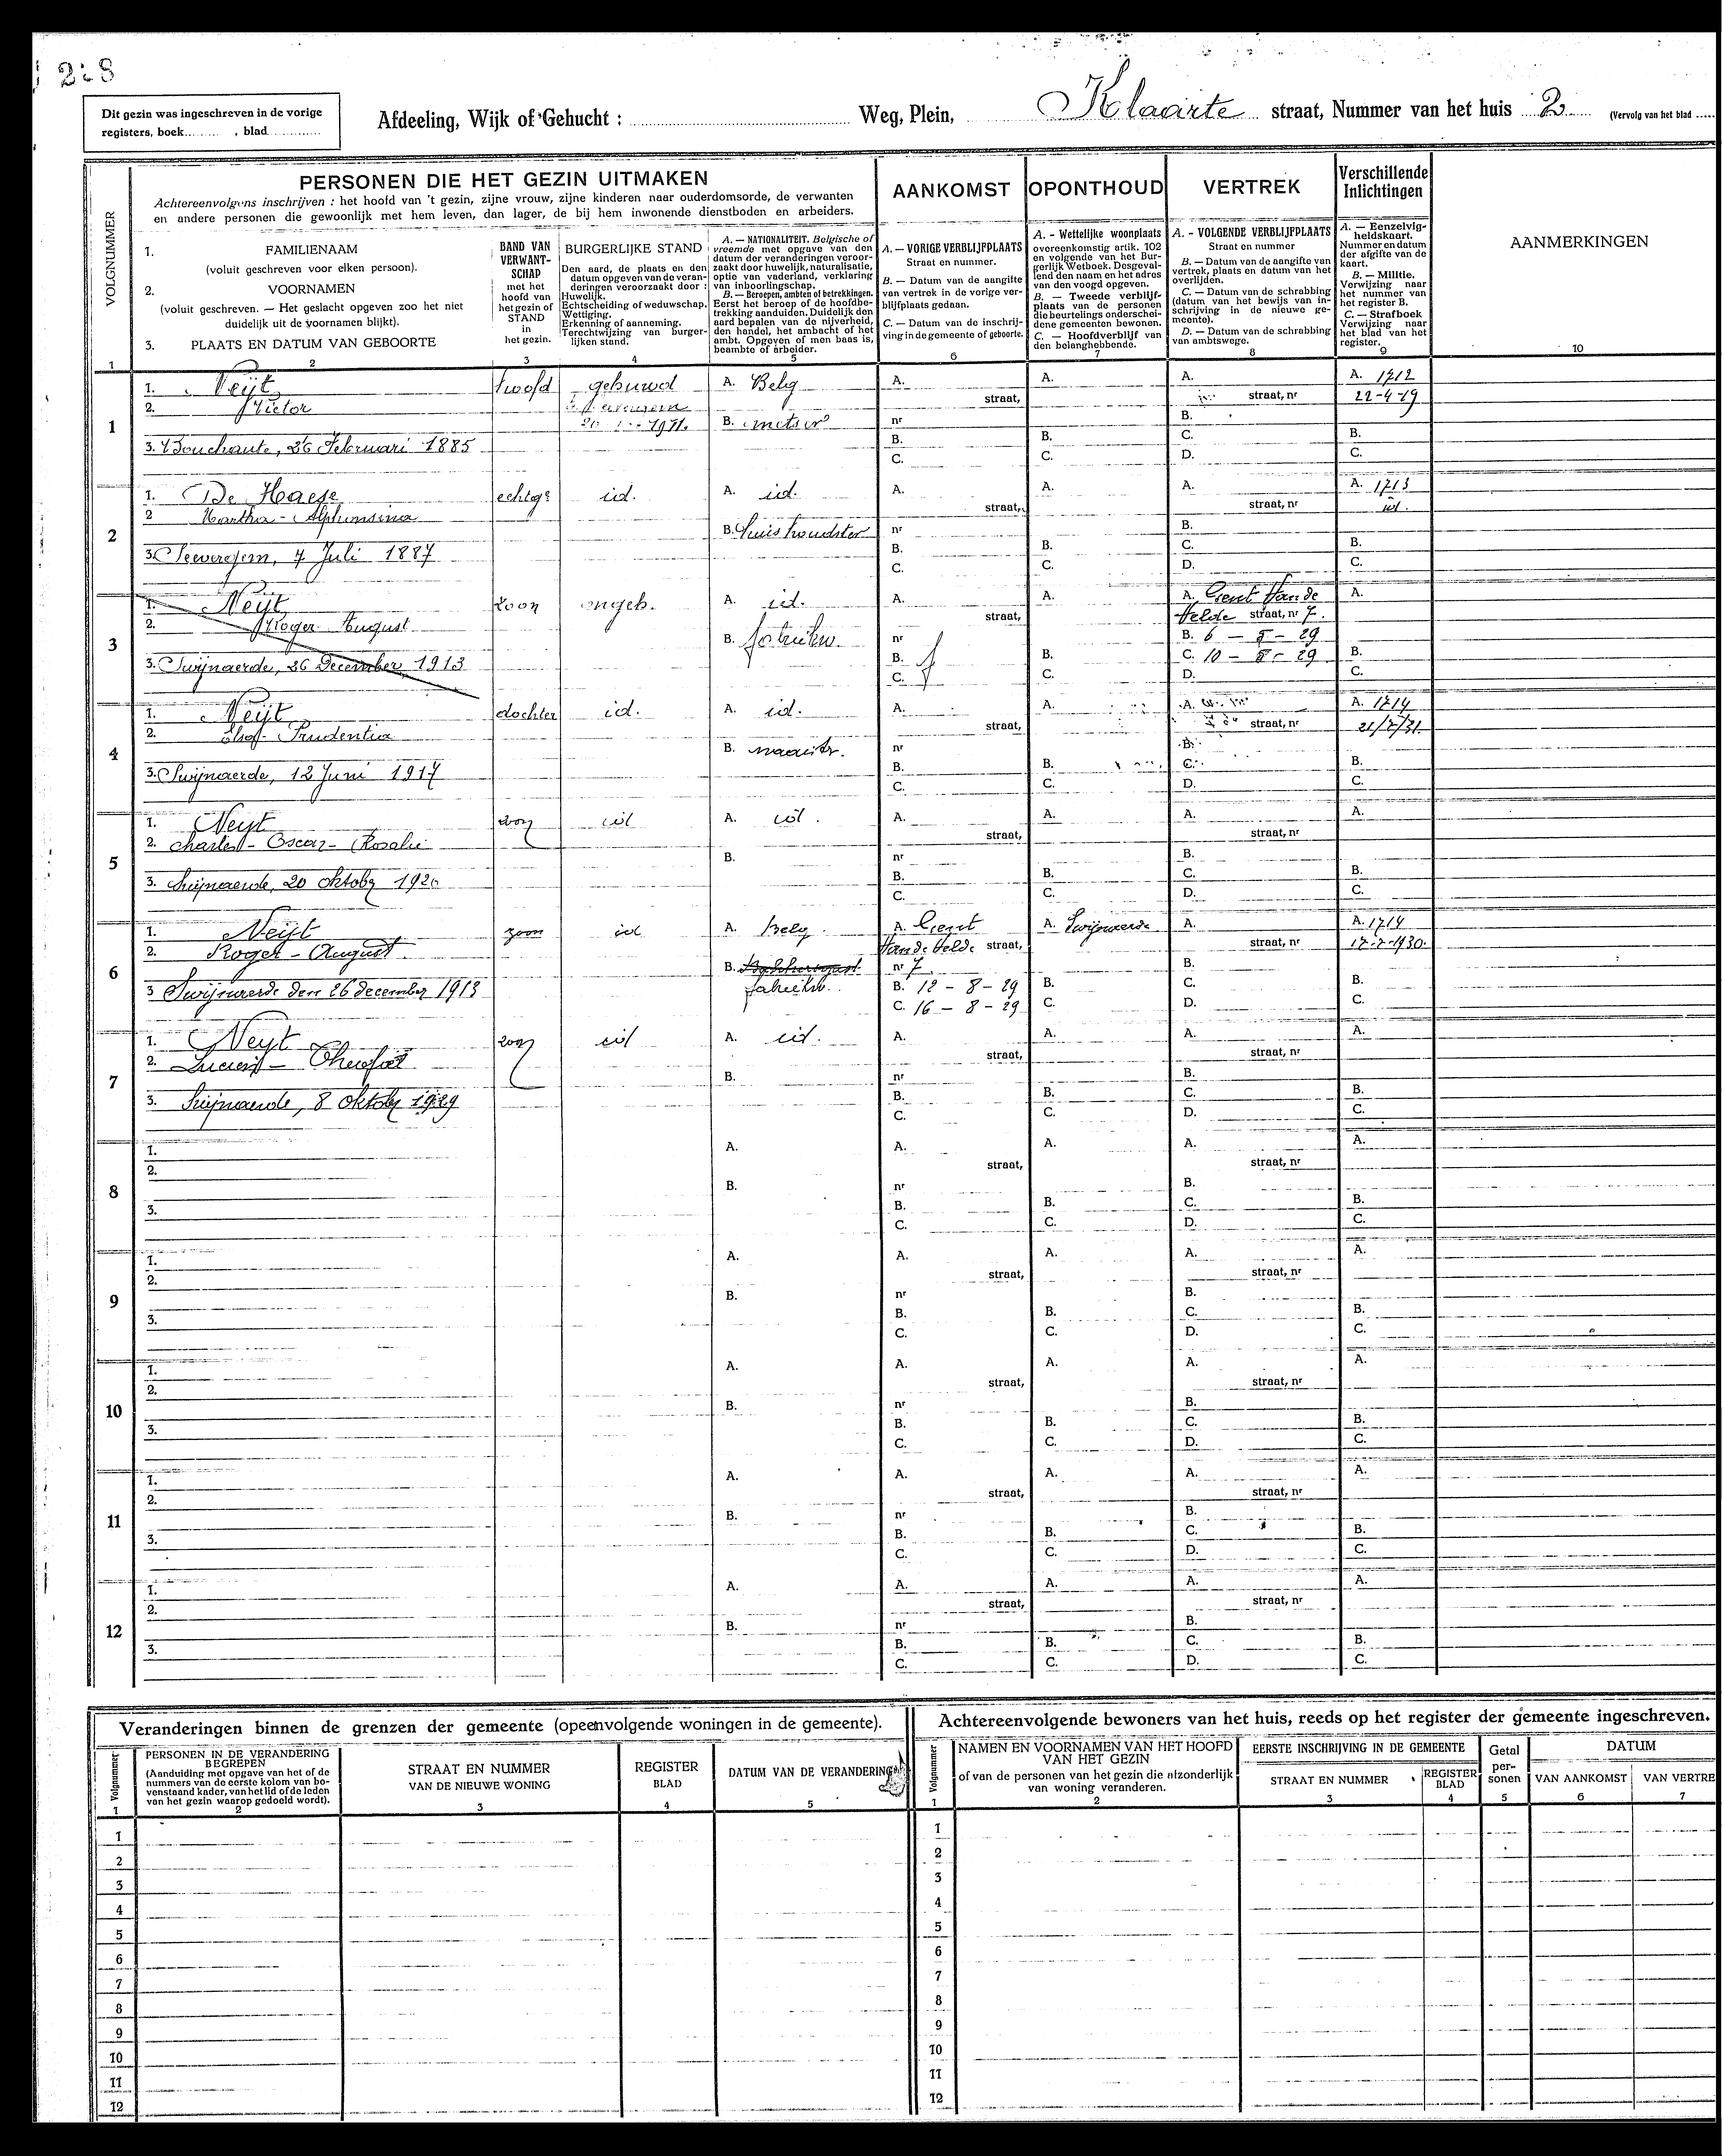 Dit gezin was ingeschreven in de vorige
registers, boek , blad
Afdeeling, Wijk of Gehucht : Weg, Plein, Klaarte straat, Nummer van het huis 2 (Vervolg van het blad
VOLGNUMMER
PERSONEN DIE HET GEZIN UITMAKEN
Achtereenvolgens inschrijven : het hoofd van 't gezin, zijne vrouw, zijne kinderen naar ouderdomsorde, de verwanten
en andere personen die gewoonlijk met hem leven, dan lager, de bij hem inwonende dienstboden en arbeiders.
1. FAMILIENAAM
(voluit geschreven voor elken persoon).
2. VOORNAMEN
(voluit geschreven. — Het geslacht opgeven zoo het niet
duidelijk uit de voornamen blijkt).
3. PLAATS EN DATUM VAN GEBOORTE
BAND VAN
VERWANT-
SCHAP
met het
hoofd van
het gezin of
STAND
in
het gezin.
BURGERLIJKE STAND
Den aard, de plaats en den
datum opgeven van de veran-
deringen veroorzaakt door :
Huwelijk.
Echtscheiding of weduwschap.
Wettiging.
Erkenning of aanneming.
Terechtwijzing van burger-
lijken stand.
A. — NATIONALITEIT. Belgische of
vreemde met opgave van den
datum der veranderingen veroor-
zaakt door huwelijk, naturalisatie,
optie van vaderland, verklaring
van inboorlingschap.
B. — Beroepen, ambten of betrekkingen.
Eerst het beroep of de hoofdbe-
trekking aanduiden. Duidelijk den
aard bepalen van de nijverheid,
den handel, het ambacht of het
ambt. Opgeven of men baas is,
beambte of arbeider.
AANKOMST
A. — VORIGE VERBLIJFPLAATS
Straat en nummer.
B. — Datum van de aangifte
van vertrek in de vorige ver-
blijfplaats gedaan.
C. — Datum van de inschrij-
ving in de gemeente of geboorte.
OPONTHOUD
A. - Wettelijke woonplaats
overeenkomstig artik. 102
en volgende van het Bur-
gerlijk Wetboek. Desgeval-
lend den naam en het adres
van den voogd opgeven.
B. — Tweede verblijf-
plaats van de personen
die beurtelings onderschei-
dene gemeenten bewonen.
C. — Hoofdverblijf van
den belanghebbende.
VERTREK
A. - VOLGENDE VERBLIJFPLAATS
Straat en nummer
B. — Datum van de aangifte van
vertrek, plaats en datum van het
overlijden.
C. — Datum van de schrabbing
(datum van het bewijs van in-
schrijving in de nieuwe ge-
meente).
D. — Datum van de schrabbing
van ambtswege.
Verschillende
Inlichtingen
A. — Eenzelvig-
heidskaart.
Nummer en datum
der afgifte van de
kaart.
B. — Militie.
Verwijzing naar
het nummer van
het register B.
C. — Strafboek
Verwijzing naar
het blad van het
register.
AANMERKINGEN
1 2 3 4 5 6 7 8 9 10
1
1. Neijt hoofd gehuwd A. Belg A. A. A. A. 1712
2. Victor straat, straat, nr 22-4-19
B. metser nr B.
3. Bouchaute, 26 Februari 1885 B. B. C. B.
C. C. D. C.
2
1. De Haese echtge id. A. id. A. A. A. A. 1713
2 Martha - Alphonsina straat, straat, nr id.
B. huishoudster nr B.
3. Seevergem, 7 Juli 1887 B. B. C. B.
C. C. D. C.
3
1. Neijt zoon ongeh. A. id. A. A. A. Gent Van de A.
2. Roger August straat, Velde straat, nr 7
B. fabriekw. nr B. 6 - 8 - 29
3. Swijnaerde, 26 December 1913 B. B. C. 10 - 8 - 29 B.
C. C. D. C.
4
1. Neijt dochter id. A. id. A. A. A. A. 1714
2. Elsa - Prudentia straat, straat, nr 21/7/31.
B. naaister. nr B.
3. Swijnaerde, 12 Juni 1917 B. B. C. B.
C. C. D. C.
5
1. Neyt zoon id A. id. A. A. A. A.
2. Charles - Oscar - Rosalie straat, straat, nr
B. nr B.
3. Swijnaerde, 20 oktober 1920 B. B. C. B.
C. C. D. C.
6
1. Neijt zoon id A. Belg. A. Gent A. Swijnaerde A. A. 1714
2. Roger - August. Van de Velde straat, straat, nr 17-7-1930.
B. fabriekw. nr 7 B.
3 Swijnaerde den 26 december 1913 B. 12 - 8 - 29 B. C. B.
C. 16 - 8 - 29 C. D. C.
7
1. Neyt zoon id A. id. A. A. A. A.
2. Lucien - straat, straat, nr
B. nr B.
3. Swijnaerde, 8 oktober 1929 B. B. C. B.
C. C. D. C.
8
1. A. A. A. A. A.
2. straat, straat, nr
B. nr B.
3. B. B. C. B.
C. C. D. C.
9
1. A. A. A. A. A.
2. straat, straat, nr
B. nr B.
3. B. B. C. B.
C. C. D. C.
10
1. A. A. A. A. A.
2. straat, straat, nr
B. nr B.
3. B. B. C. B.
C. C. D. C.
11
1. A. A. A. A. A.
2. straat, straat, nr
B. nr B.
3. B. B. C. B.
C. C. D. C.
12
1. A. A. A. A. A.
2. straat, straat, nr
B. nr B.
3. B. B. C. B.
C. C. D. C.
Veranderingen binnen de grenzen der gemeente (opeenvolgende woningen in de gemeente).
Volgnummer
PERSONEN IN DE VERANDERING
BEGREPEN
(Aanduiding met opgave van het of de
nummers van de eerste kolom van bo-
venstaand kader, van het lid of de leden
van het gezin waarop gedoeld wordt).
STRAAT EN NUMMER
VAN DE NIEUWE WONING
REGISTER
BLAD
DATUM VAN DE VERANDERING
1 2 3 4 5
1
2
3
4
5
6
7
8
9
10
11
12
Achtereenvolgende bewoners van het huis, reeds op het register der gemeente ingeschreven.
Volgnummer
NAMEN EN VOORNAMEN VAN HET HOOFD
VAN HET GEZIN
of van de personen van het gezin die afzonderlijk
van woning veranderen.
EERSTE INSCHRIJVING IN DE GEMEENTE
STRAAT EN NUMMER
REGISTER
BLAD
Getal
per-
sonen
DATUM
VAN AANKOMST VAN VERTRE
1 2 3 4 5 6 7
1
2
3
4
5
6
7
8
9
10
11
12